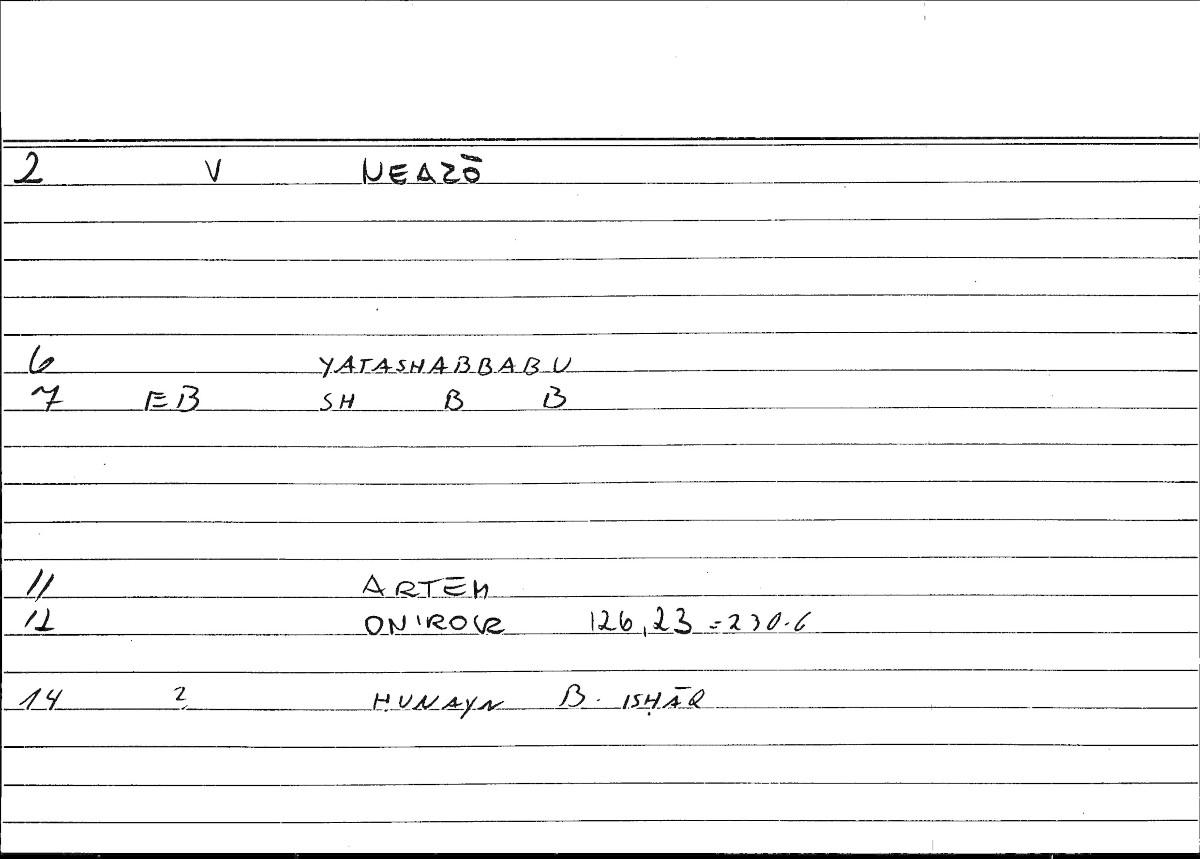 2 V NEAZŌ
6 YATASHABBABU
7 EB SH B B
11 ARTEM
12 ONIROCR 126,23 = 230.6
14 2 ḤUNAYN B. ISḤĀQ